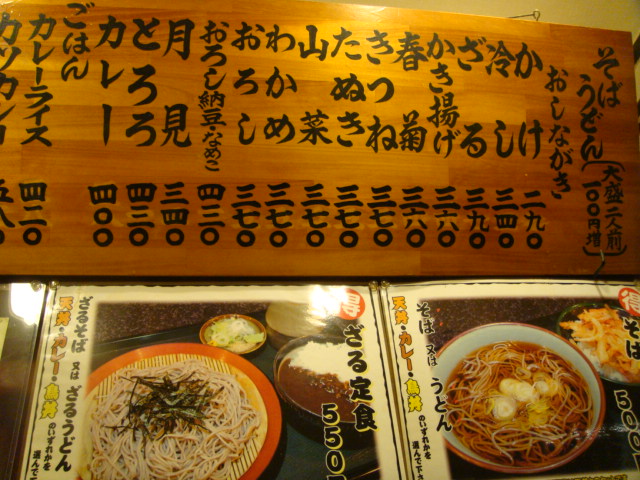 そば うどん
(大盛二人前 一〇〇円増)
おしながき
かけ 二九〇
冷し 三四〇
ざる 三九〇
かき揚げ 三六〇
春菊 三六〇
きつね 三七〇
たぬき 三七〇
山菜 三七〇
わかめ 三七〇
おろし 三七〇
おろし納豆・なめこ 四二〇
月見 三四〇
とろろ 四三〇
カレー 四〇〇
ごはん
カレーライス 四二〇
カツカレー 五八〇
ざるそば 又は ざるうどん
天丼・カレー・鳥丼
のいずれかを
選んで下
得
ざる定食
550
そば 又は うどん
天丼・カレー・鳥丼
のいずれかを
選んで下さ
得
そば
50